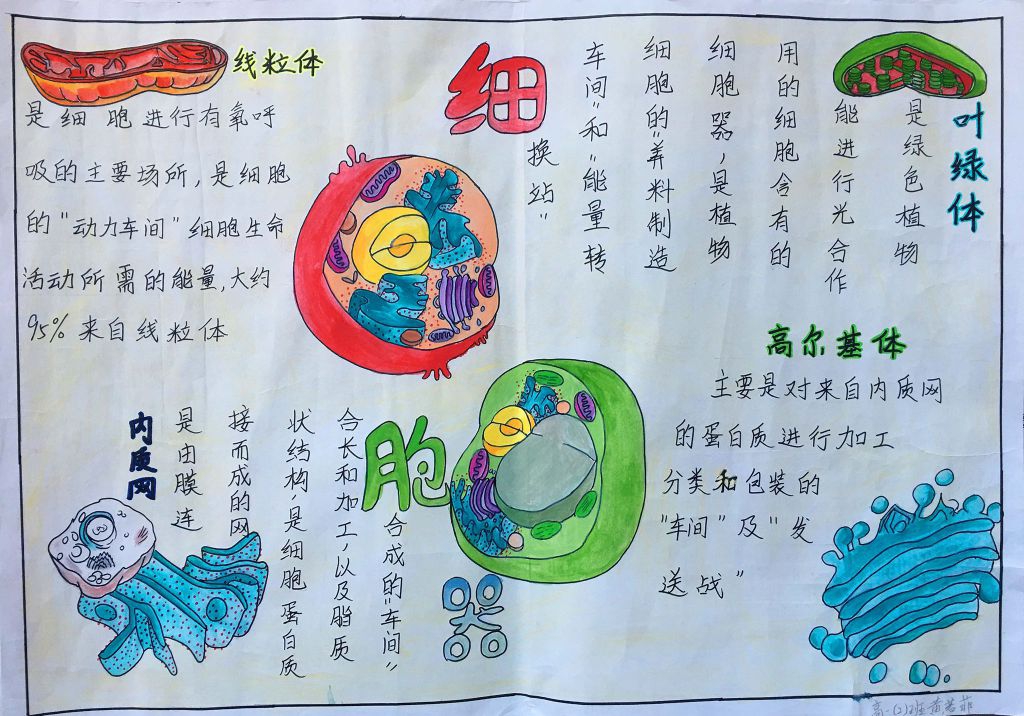 线粒体
是细胞进行有氧呼
吸的主要场所,是细胞
的"动力车间"细胞生命
活动所需的能量,大约
95%来自线粒体
细
胞
器
叶绿体
是绿色植物
能进行光合作
用的细胞含有的
细胞器,是植物
细胞的"养料制造
车间"和"能量转
换站"
高尔基体
主要是对来自内质网
的蛋白质进行加工
分类和包装的
"车间"及"发
送战"
内质网
是由膜连
接而成的网
状结构,是细胞蛋白质
合长和加工,以及脂质
合成的"车间"
高一(2)班